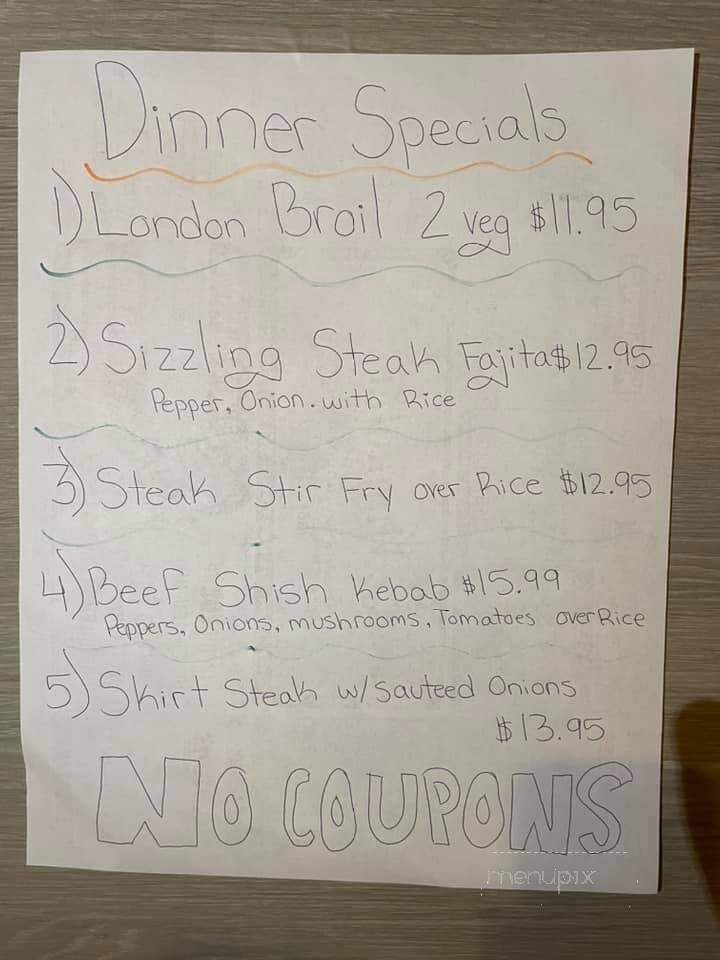 Dinner Specials
1) London Broil 2 veg $11.95
2) Sizzling Steak Fajita $12.95
Pepper, Onion. with Rice
3) Steak Stir Fry over Rice $12.95
4) Beef Shish Kebab $15.99
Peppers, Onions, mushrooms, Tomatoes over Rice
5) Skirt Steak w/ Sauteed Onions
$13.95
NO COUPONS
menupix